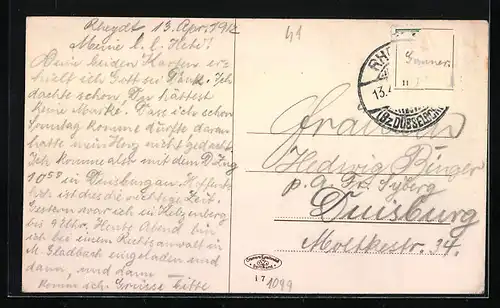 Rheydt 13. Apr. 1912
Meine l. l. Hete!
Deine beiden Karten er-
hielt ich Gott sei Dank. Ich
dachte schon, Du hättest
keine Marke! Dass ich schon
Sonntag kommen dürfte daran
hatte mein Herz nicht gedacht.
Ich komme also mit dem D Zug
10⁵⁸ in Duisburg an. Hoffent-
lich ist dies die richtige Zeit.
Gestern war ich in
bis 9 Uhr. Heute Abend bin
ich bei einem Rechtsanwalt in
M. Gladbach eingeladen und
dann, und dann
komm ich. Grüsse bitte
Fräulein
Hedwig Binger
p. a. Fr. Syberg
Duisburg
Moltkestr. 34.
RHE
13.4
(BZ DÜSSELDORF)
17
1099